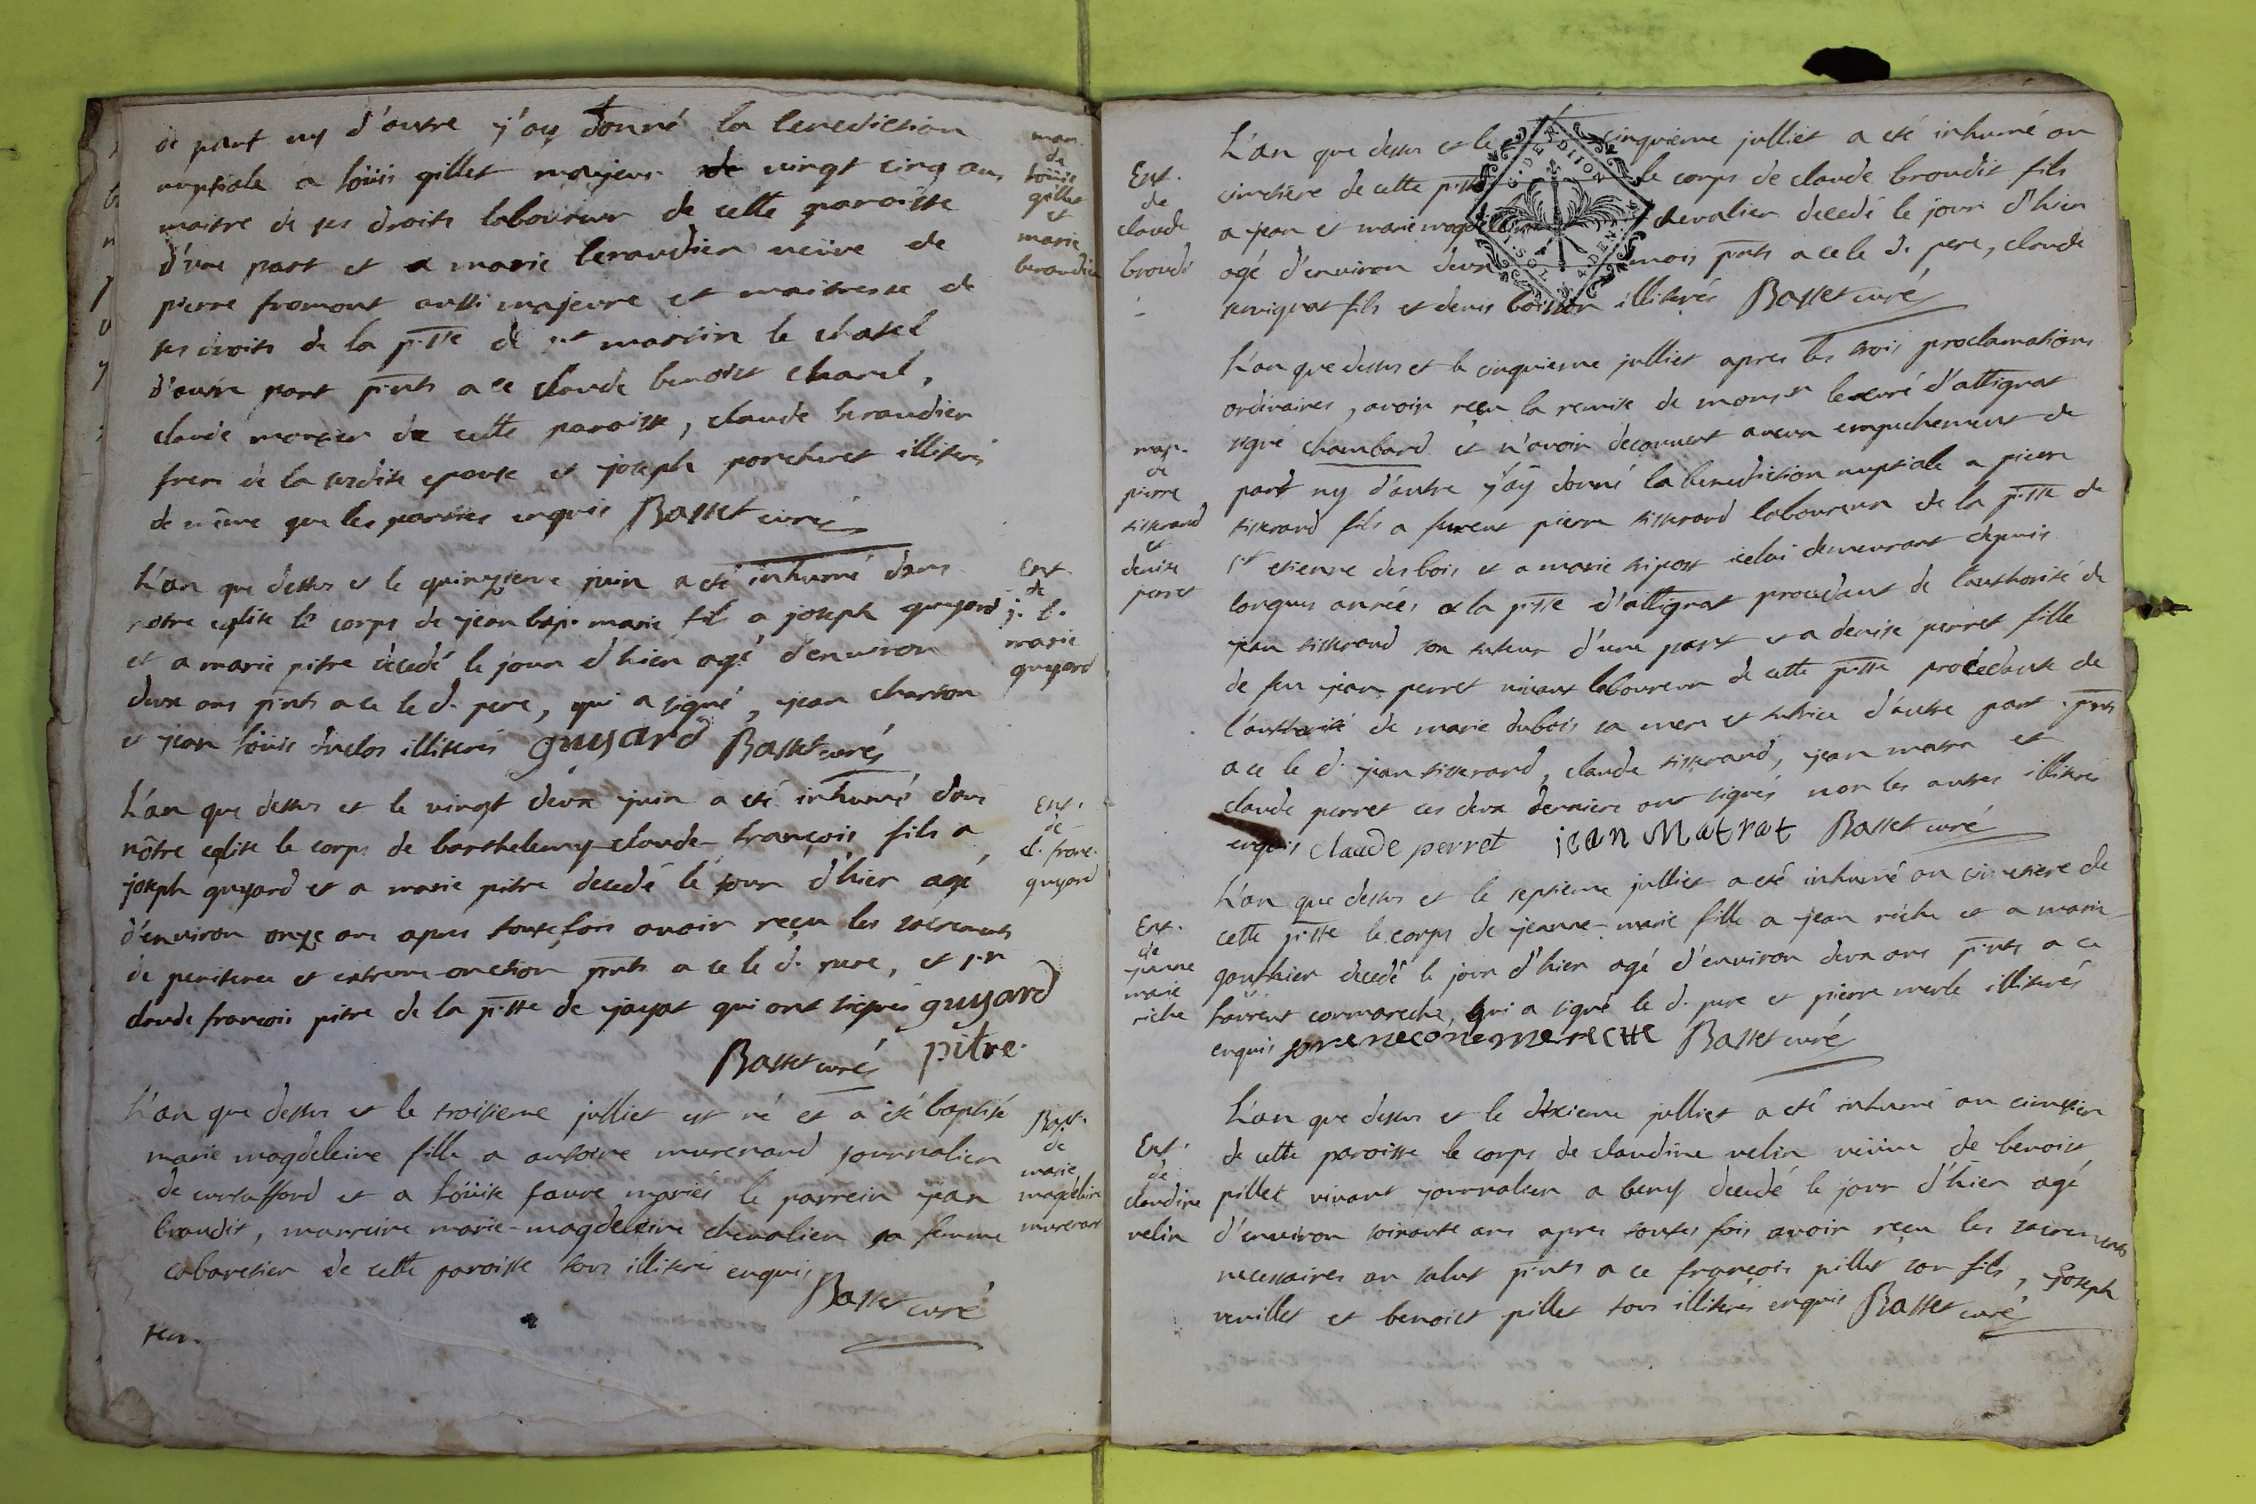 de part ny d'autre j'ay donné la benediction
nuptiale a loüis gillet majeur de vingt cinq ans
maitre de ses droits laboureur de cette paroisse
d'une part et a marie beraudier veüve de
pierre fromont aussi majeure et maitresse de
ses droits de la p.sse de st martin le chatel
d'autre part p.nts a ce claude benoict charel,
claude mercier de cette paroisse, claude beraudier
frere de la susdite epouse et joseph porcheret illiterés
de même que les parties enquis Basset curé
mar.
de
loüis
gillet
et
marie
beraudier
L'an que dessus et le quinzieme juin a eté inhumé dans
nôtre eglise le corps de jean bap. marie fils a joseph guyard
et a marie pitre decedé le jour d'hier agé d'environ
deux ans p.nts a ce le d. pere, qui a signé, jean charton
et jean loüis duclos illiterés guyard Basset curé
Ent.
de
j. b.
marie
guyard
L'an que dessus et le vingt deux juin a eté inhumé dans
nôtre eglise le corps de barthelemy claude françois fils a
joseph guyard et a marie pitre decedé le jour d'hier agé
d'environ onze ans apres toutefois avoir reçu les sacrements
de penitence et extreme onction p.nts a ce le d. pere, et sr
claude françois pitre de la p.sse de jayat qui ont signés guyard
Basset curé pitre
Ent.
de
cl. franc.
guyard
L'an que dessus et le troisieme julliet est né et a eté baptisé
marie magdeleine fille a antoine murenard journalier
de curtafford et a loüise faure mariés le parrein jean
broudit, marreine marie-magdeleine chevalier sa femme
cabaretier de cette paroisse tous illiterés enquis
Basset curé
Bapt.
de
marie
magdeleine
murenard
L'an que dessus et le cinquieme julliet a eté inhumé au
cimetiere de cette p.sse le corps de claude broudit fils
a jean et marie magdeleine chevalier decedé le jour d'hier
agé d'environ deux mois p.nts a ce le d. pere, claude
fils et denis illiterés Basset curé
G. DE DIJON
1 SOL 4 DEN
Ent.
de
claude
broudi
L'an que dessus et le cinquieme julliet apres les trois proclamations
ordinaires, avoir reçu la remise de monsr le curé d'attignat
signé chambard et n'avoir decouvert aucun empechement de
part ny d'autre j'ay donné la benediction nuptiale a pierre
tisserand fils a pierre tisserand laboureur de la p.sse de
st etienne des bois et a marie tripoz icelui demeurant depuis
longues années a la p.sse d'attignat procedant de l'authorité de
jean tisserand son tuteur d'une part et a denise perret fille
de feu jean perret vivant laboureur de cette p.sse procedante de
l'authorité de marie dubois sa mere et tutrice d'autre part p.nts
a ce le d. jean tisserand, claude tisserand, jean matra et
claude perret ces deux derniers ont signés non les autres illiterés
enquis claude perret jean Matrat Basset curé
mar.
de
pierre
tisserand
et
denise
perret
L'an que dessus et le septieme julliet a eté inhumé au cimetiere de
cette p.sse le corps de jeanne-marie fille a jean riche et a marie
gauthier decedé le jour d'hier agé d'environ deux ans p.nts a ce
laurent cormareche, qui a signé le d. pere et pierre merle illiterés
enquis Basset curé
Ent.
de
jeanne
marie
riche
L'an que dessus et le dixieme julliet a eté inhumé au cimetiere
de cette paroisse le corps de claudine velin veüve de benoict
pillet vivant journalier a beny decedé le jour d'hier agé
d'environ soixante ans apres toutes fois avoir reçu les sacrements
necessaires au salut p.nts a ce françois pillet son fils, joseph
vuillet et benoict pillet tous illiterés enquis Basset curé
Ent.
de
claudine
velin